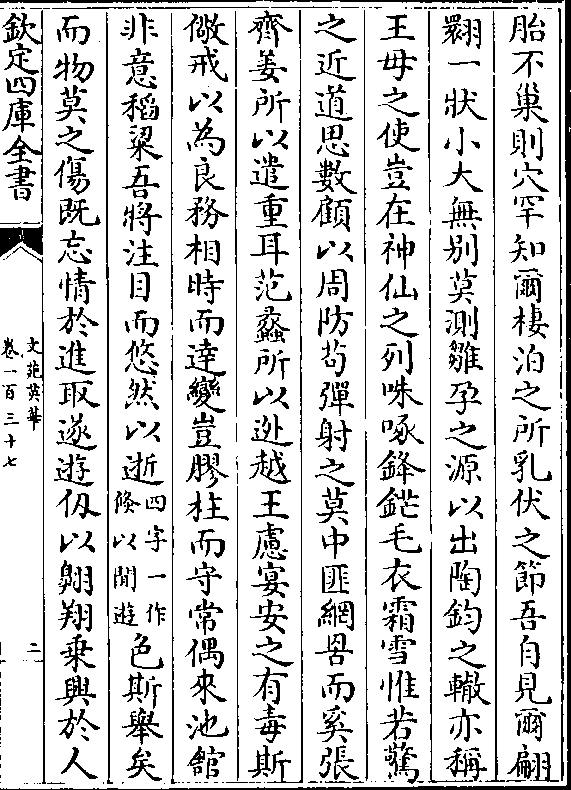 胎不巢則穴罕知爾棲泊之所乳伏之節吾自見爾翩
翾一狀小大無别莫測雛孕之源以出陶鈞之轍亦稱
王母之使豈在神仙之列咮啄鋒鋩毛衣霜雪惟若驚
之近道思數顧以周防苟彈射之莫中匪網罟而奚張
齊姜所以遣重耳范蠡所以迯越王慮宴安之有毒斯
儆戒以為良務相時而達變豈膠柱而守常偶來池館
非意稻粱吾將注目而悠然以逝四字一作倐以閒遊色斯舉矣
而物莫之傷既忘情於進取遂遊伋以翺翔乗興於人
欽定四庫全書
文苑英華
卷一百三十七
二